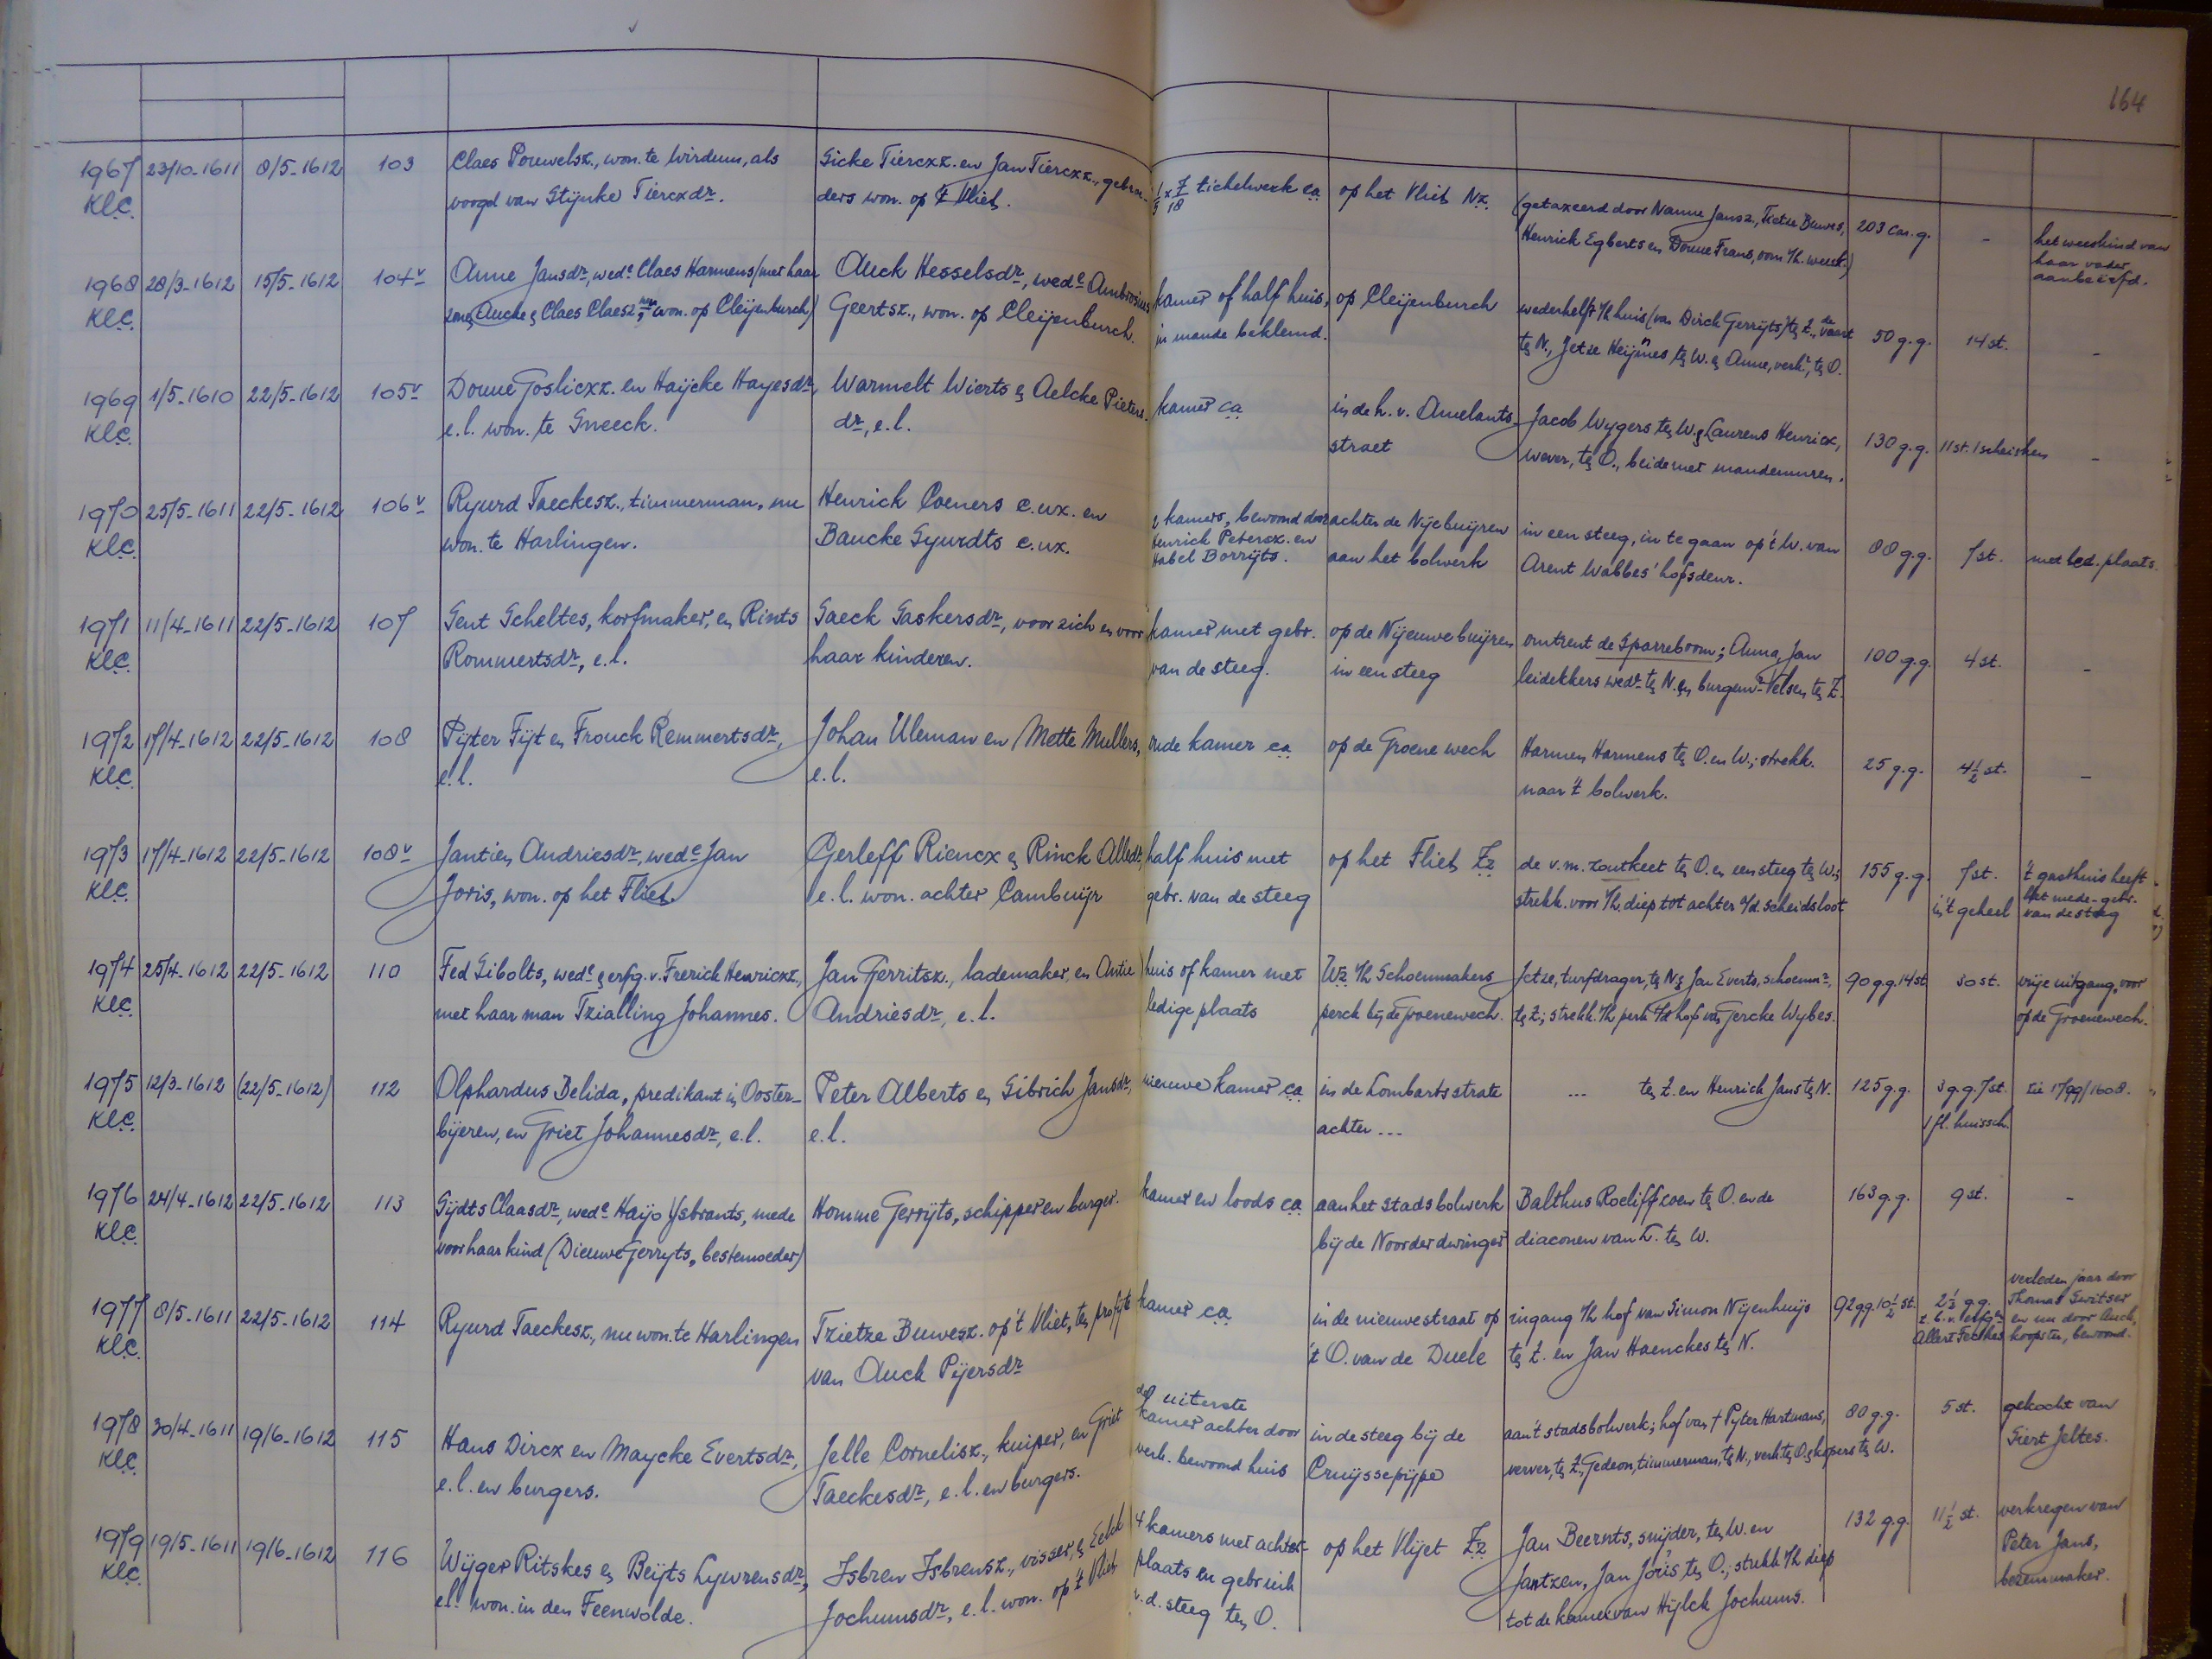 164
1967 23/10-1611 8/5-1612 103 Claes Pouwelsz., won. te Wirdum, als Sicke Tiercxz. en Jan Tiercxz., gebroe- 1/3 x 7/18 tichelwerk ca op het Vliet Nz. (getaxeerd door Nanne Jansz., Tietse Buwes, 203 Car. g. - het weeskind van
Klc. voogd van Stijnke Tiercxdr. ders won. op 't Vliet. Henrick Egberts en Douwe Frans, oom v/h. weesk.) haar vader
aanbeërfd.
1968 28/3-1612 15/5-1612 104v Anne Jansdr, wede Claes Harmens (met haar Auck Hesselsdr, wede Ambrosius kamer of half huis, op Cleijenburch wederhelft v/h huis (van Dirck Gerrijts) te Z., de vaart 50 g.g. 14 st. -
Klc. zoons Aucke & Claes Claesz., won. op Cleijenburch) Geertsz., won. op Cleijenburch. in mande beklemd. te N., Jetze Heijnnes te W. & Anne, verk., te O.
1969 1/5-1610 22/5-1612 105v Douwe Goslicxz. en Haijcke Hayesdr, Warmelt Wierts & Aelcke Pieters- kamer ca in de h. v. Amelants- Jacob Wygers te W. & Laurens Henricx, 130 g.g. 11 st. 1 scheisken -
Klc. e.l. won. te Sneeck. dr, e.l. straet wever, te O., beide met mandemuren.
1970 25/5-1611 22/5-1612 106v Ryurd Taeckesz., timmerman, nu Henrick Coeners c.ux. en 2 kamers, bewoond door achter de Nijebuijren in een steeg, in te gaan op 't W. van 88 g.g. 7 st. met led. plaats.
Klc. won. te Harlingen. Baucke Syurdts c.ux. Henrick Petersz. en aan het bolwerk Arent Wabbes' hofsdeur.
Habel Borrijts.
1971 11/4-1611 22/5-1612 107 Sent Scheltes, korfmaker, en Rints Saeck Saskersdr, voor zich en voor kamer met gebr. op de Nijeuwebuijren omtrent de Sparreboom; Anna, Jan 100 g.g. 4 st. -
Klc. Rommertsdr, e.l. haar kinderen. van de steeg. in een steeg leidekkers wedr te N. en burgemr Velsen te Z.
1972 17/4-1612 22/5-1612 108 Pijter Fijt en Frouck Remmertsdr, Johan Uleman en Mette Mullers, oude kamer ca op de Groene wech Harmen Harmens te O. en W.; strekk. 25 g.g. 4½ st. -
Klc. e.l. e.l. naar 't bolwerk.
1973 17/4-1612 22/5-1612 108v Jantien Andriesdr, wede Jan Gerleff Riencx & Rinck Alledr, half huis met op het Fliet Zz de v.m. zoutkeet te O. en een steeg te W.; 155 g.g. 7 st. 't gasthuis heeft
Klc. Joris, won. op het Fliet. e.l. won. achter Cambuijr gebr. van de steeg strekk. voor v/h. diep tot achter a/d. scheidsloot in 't geheel het mede-gebr.
van de steeg
1974 25/4-1612 22/5-1612 110 Fed Sibolts, wede & erfg. v. Frerick Henricxz., Jan Gerritsz., lademaker, en Antie huis of kamer met Wz v/h Schoenmakers Jetze, turfdrager, te N. & Jan Everts, schoenmr, 90 g.g. 14 st 30 st. vrije uitgang voor
Klc. met haar man Tzialling Johannes. Andriesdr, e.l. ledige plaats perck bij de Groenewech. te Z.; strekk. v/h perk t/d hof van Gercke Wybes. op de Groenewech.
1975 12/3-1612 (22/5-1612) 112 Olphardus Belida, predikant in Ooster- Peter Alberts en Sibrich Jansdr, nieuwe kamer ca in de Lombartsstrate ... te Z. en Henrich Jans te N. 125 g.g. 3 g.g. 7 st. zie 1799/1608.
Klc. bijeren, en Griet Johannesdr, e.l. e.l. achter ... 1 fl. huissch.
1976 24/4-1612 22/5-1612 113 Sijdts Claasdr, wede Haijo Ysbrants, mede Homme Gerrijts, schipper en burger. kamer en loods ca aan het stadsbolwerk Balthus Roeliff coen te O. en de 163 g.g. 9 st. -
Klc. voor haar kind (Dieuwe Gerryts, bestemoeder) bij de Noorderdwinger diaconen van L. te W.
1977 8/5-1611 22/5-1612 114 Ryurd Taeckesz., nu won. te Harlingen Tzietze Buwesz. op 't Vliet, ten profijte kamer ca in de nieuwestraat op ingang v/h hof van Simon Nijenhuijs 92 gg. 10½ st. 2½ g.g. verleden jaar door
Klc. van Auck Pijersdr 't O. van de Duele te Z. en Jan Haenckes te N. t.b.v. erfgn Thomas Switser
Allert Feckes en nu door Auck,
koopster, bewoond.
1978 30/4-1611 19/6-1612 115 Hans Dircx en Maycke Evertsdr, Jelle Cornelisz., kuiper, en Griet de uiterste kamer achter door in de steeg bij de aan 't stadsbolwerk; hof van † Pyter Hartmans, 80 g.g. 5 st. gekocht van
Klc. e.l. en burgers. Taeckesdr, e.l. en burgers. verk. bewoond huis Cruijssepijpe verver, te Z., Gedeon, timmerman, te N., verk. te O. & kopers te W. Siert Jeltes.
1979 19/5-1611 19/6-1612 116 Wijger Ritskes & Beijts Lywrensdr, Isbren Isbrensz., visser, & Eelck 4 kamers met achter- op het Vlijet Zz Jan Beernts, snijder, te W. en 132 g.g. 11½ st. verkregen van
Klc. e.l. won. in den Feenwolde. Jochumsdr, e.l. won. op 't Vliet plaats en gebruik Jantzen, Jan Joris te O.; strekk. v/h diep Peter Jans,
v.d. steeg ten O. tot de kamer van Hijlck Jochums. bezemmaker.